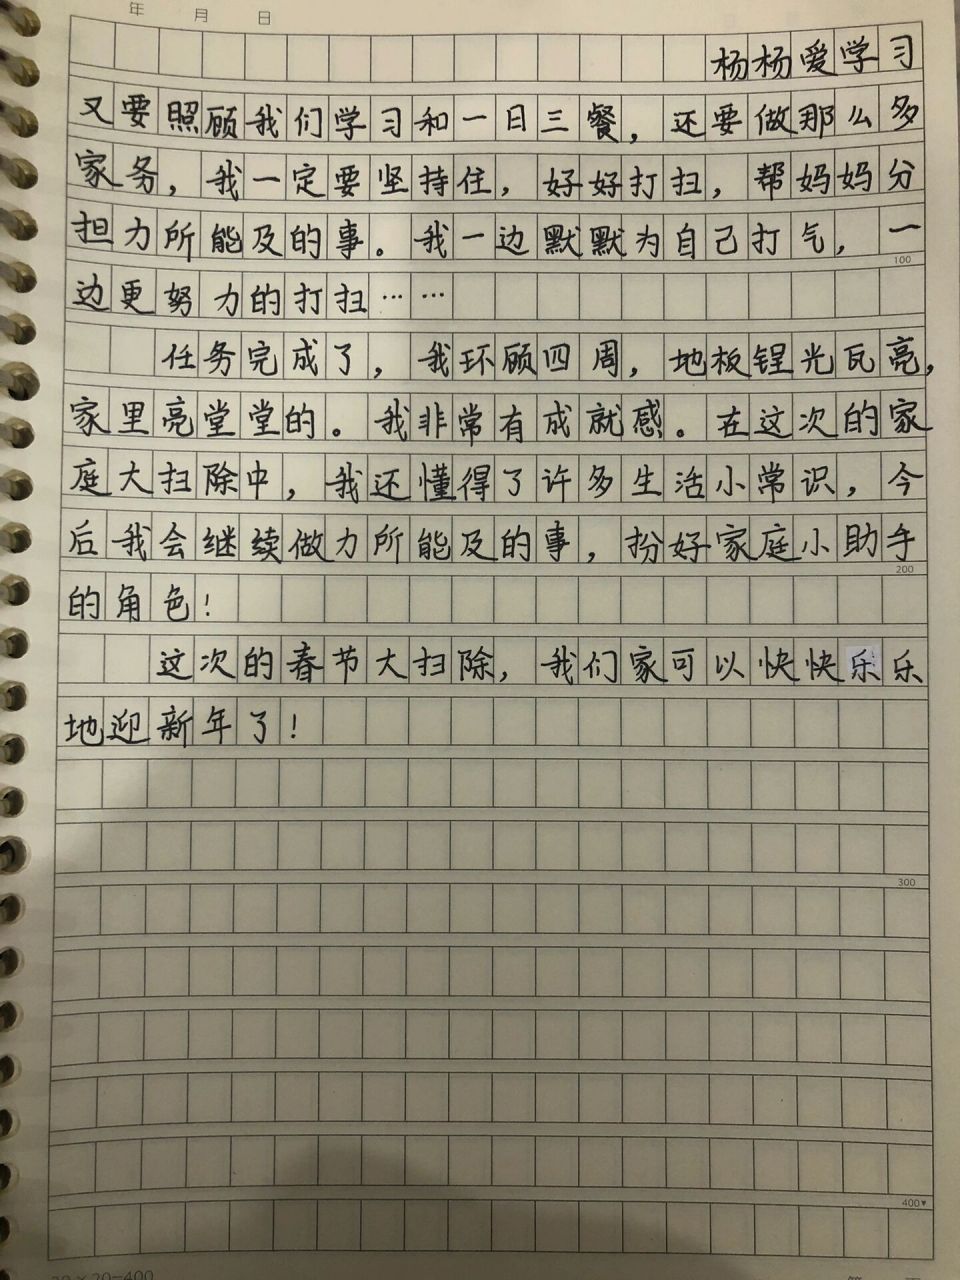 年 月 日
杨杨爱学习
又要照顾我们学习和一日三餐，还要做那么多
家务，我一定要坚持住，好好打扫，帮妈妈分
担力所能及的事。我一边默默为自己打气，一
100
边更努力的打扫……
任务完成了，我环顾四周，地板锃光瓦亮，
家里亮堂堂的。我非常有成就感。在这次的家
庭大扫除中，我还懂得了许多生活小常识，今
后我会继续做力所能及的事，扮好家庭小助手
200
的角色！
这次的春节大扫除，我们家可以快快乐乐
地迎新年了！
300
400▼
20×20=400